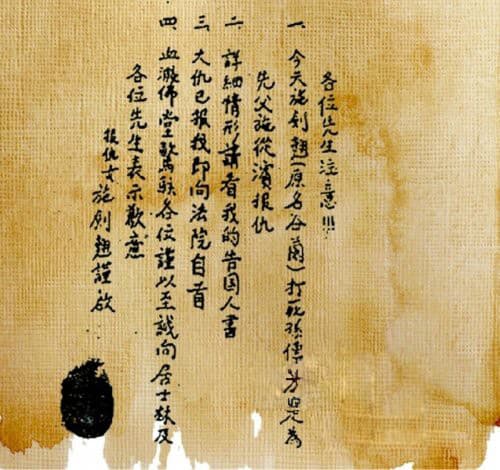 各位先生注意!!!
一、今天施剑翘(原名谷蘭)打死孫傳芳是為
先父施從濱報仇
二、詳細情形請看我的告国人書
三、大仇已报我即向法院自首
四、血濺佛堂驚駭各位謹以至誠向居士林及
各位先生表示歉意
报仇女施剑翘謹啟